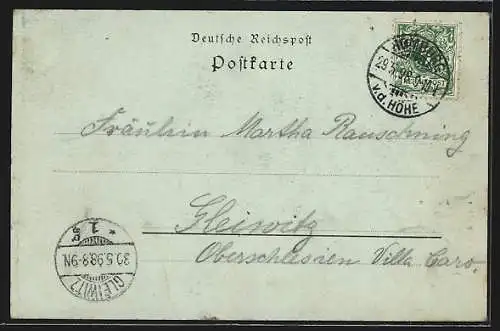 Deutsche Reichspost
Postkarte
HOMBURG
29.5.98.9-10V
v.d. HÖHE
Fräulein Martha Rauschning
Gleiwitz
Oberschlesien Villa Caro.
GLEIWITZ
30.5.98.8-9N.
* 1 *